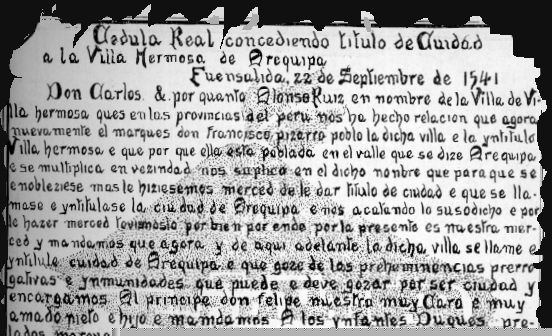 Cedula Real concediendo titulo de Cuidad
a la Villa Hermosa de Arequipa
Fuensalida, 22 de Septiembre de 1541
Don Carlos. &. por quanto Alonso Ruiz en nombre de la Villa de Vi-
lla hermosa ques en las provincias del peru nos ha hecho relacion que agora
nuevamente el marques don francisco pizarro poblo la dicha villa e la yntitulo
Villa hermosa e que por que ella esta poblada en el valle que se dize Arequipa
e se multiplica en vezindad nos suplico en el dicho nonbre que para que se
enobleziese mas le hiziesemos merced de le dar titulo de ciudad e que se lla-
mase e yntitulase la ciudad de Arequipa e nos acatando lo susodicho e por
le hazer merced tovimoslo por bien por ende por la presente es nuestra mer-
ced y mandamos que agora y de aqui adelante la dicha villa se llame e
yntitule cuidad de Arequipa e que goze de las preheminencias prerro-
gativas e ynmunidades que puede e deve gozar por ser ciudad y
encargamos Al principe don felipe nuestro muy Caro e muy
amado nieto e hijo e mandamos A los ynfantes Duques pre-
lados marque